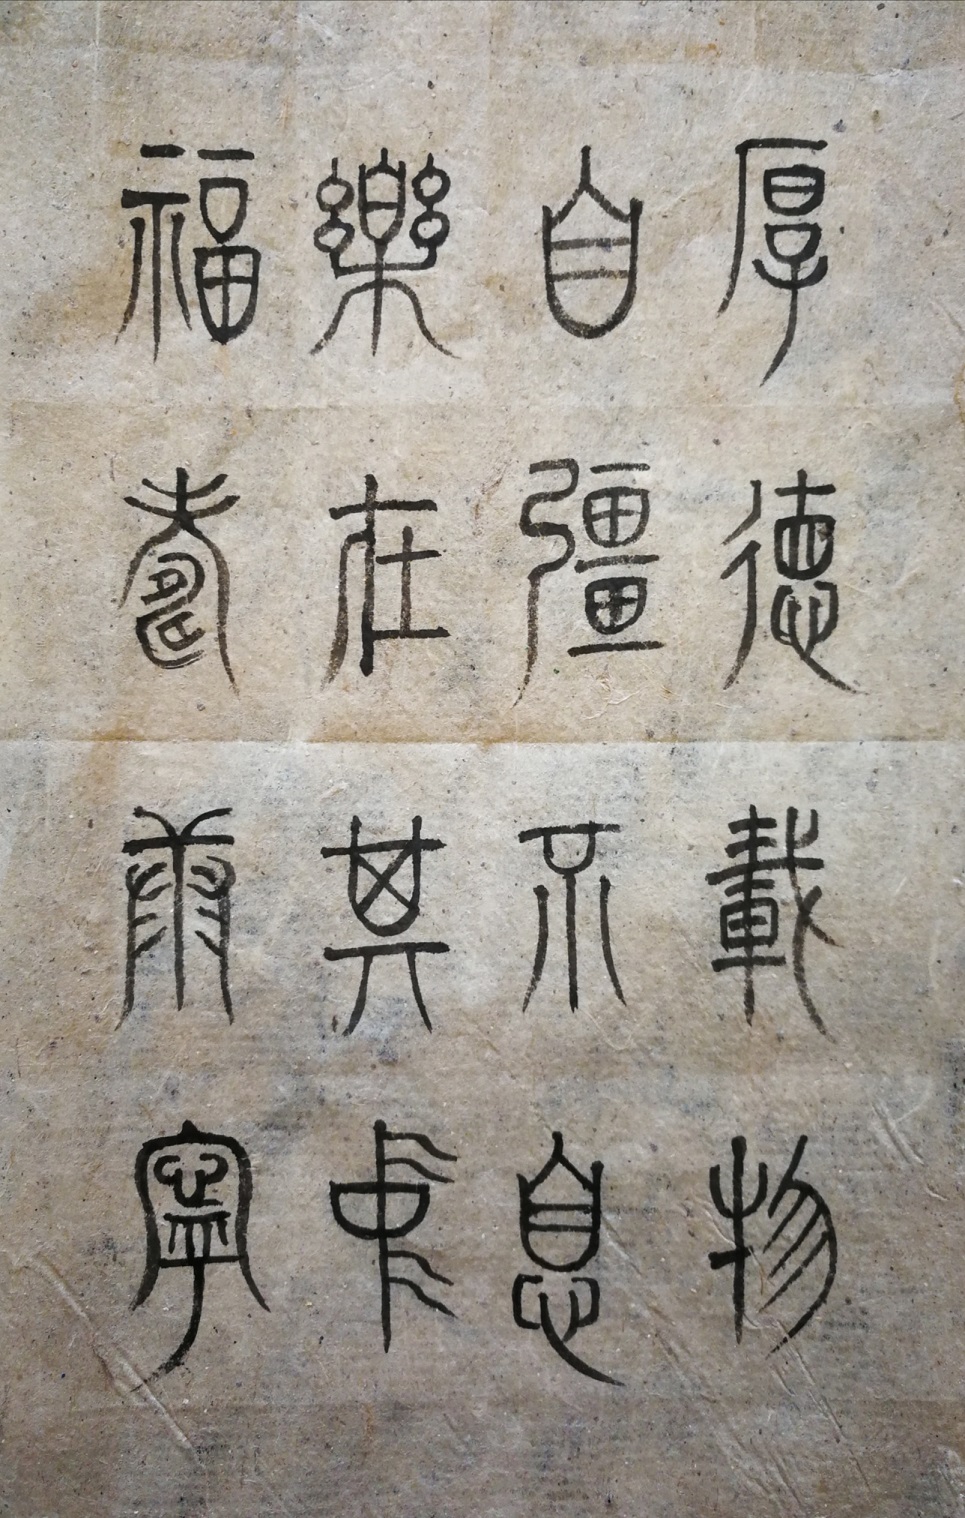 厚德載物
自彊不息
樂在其中
福壽康寧